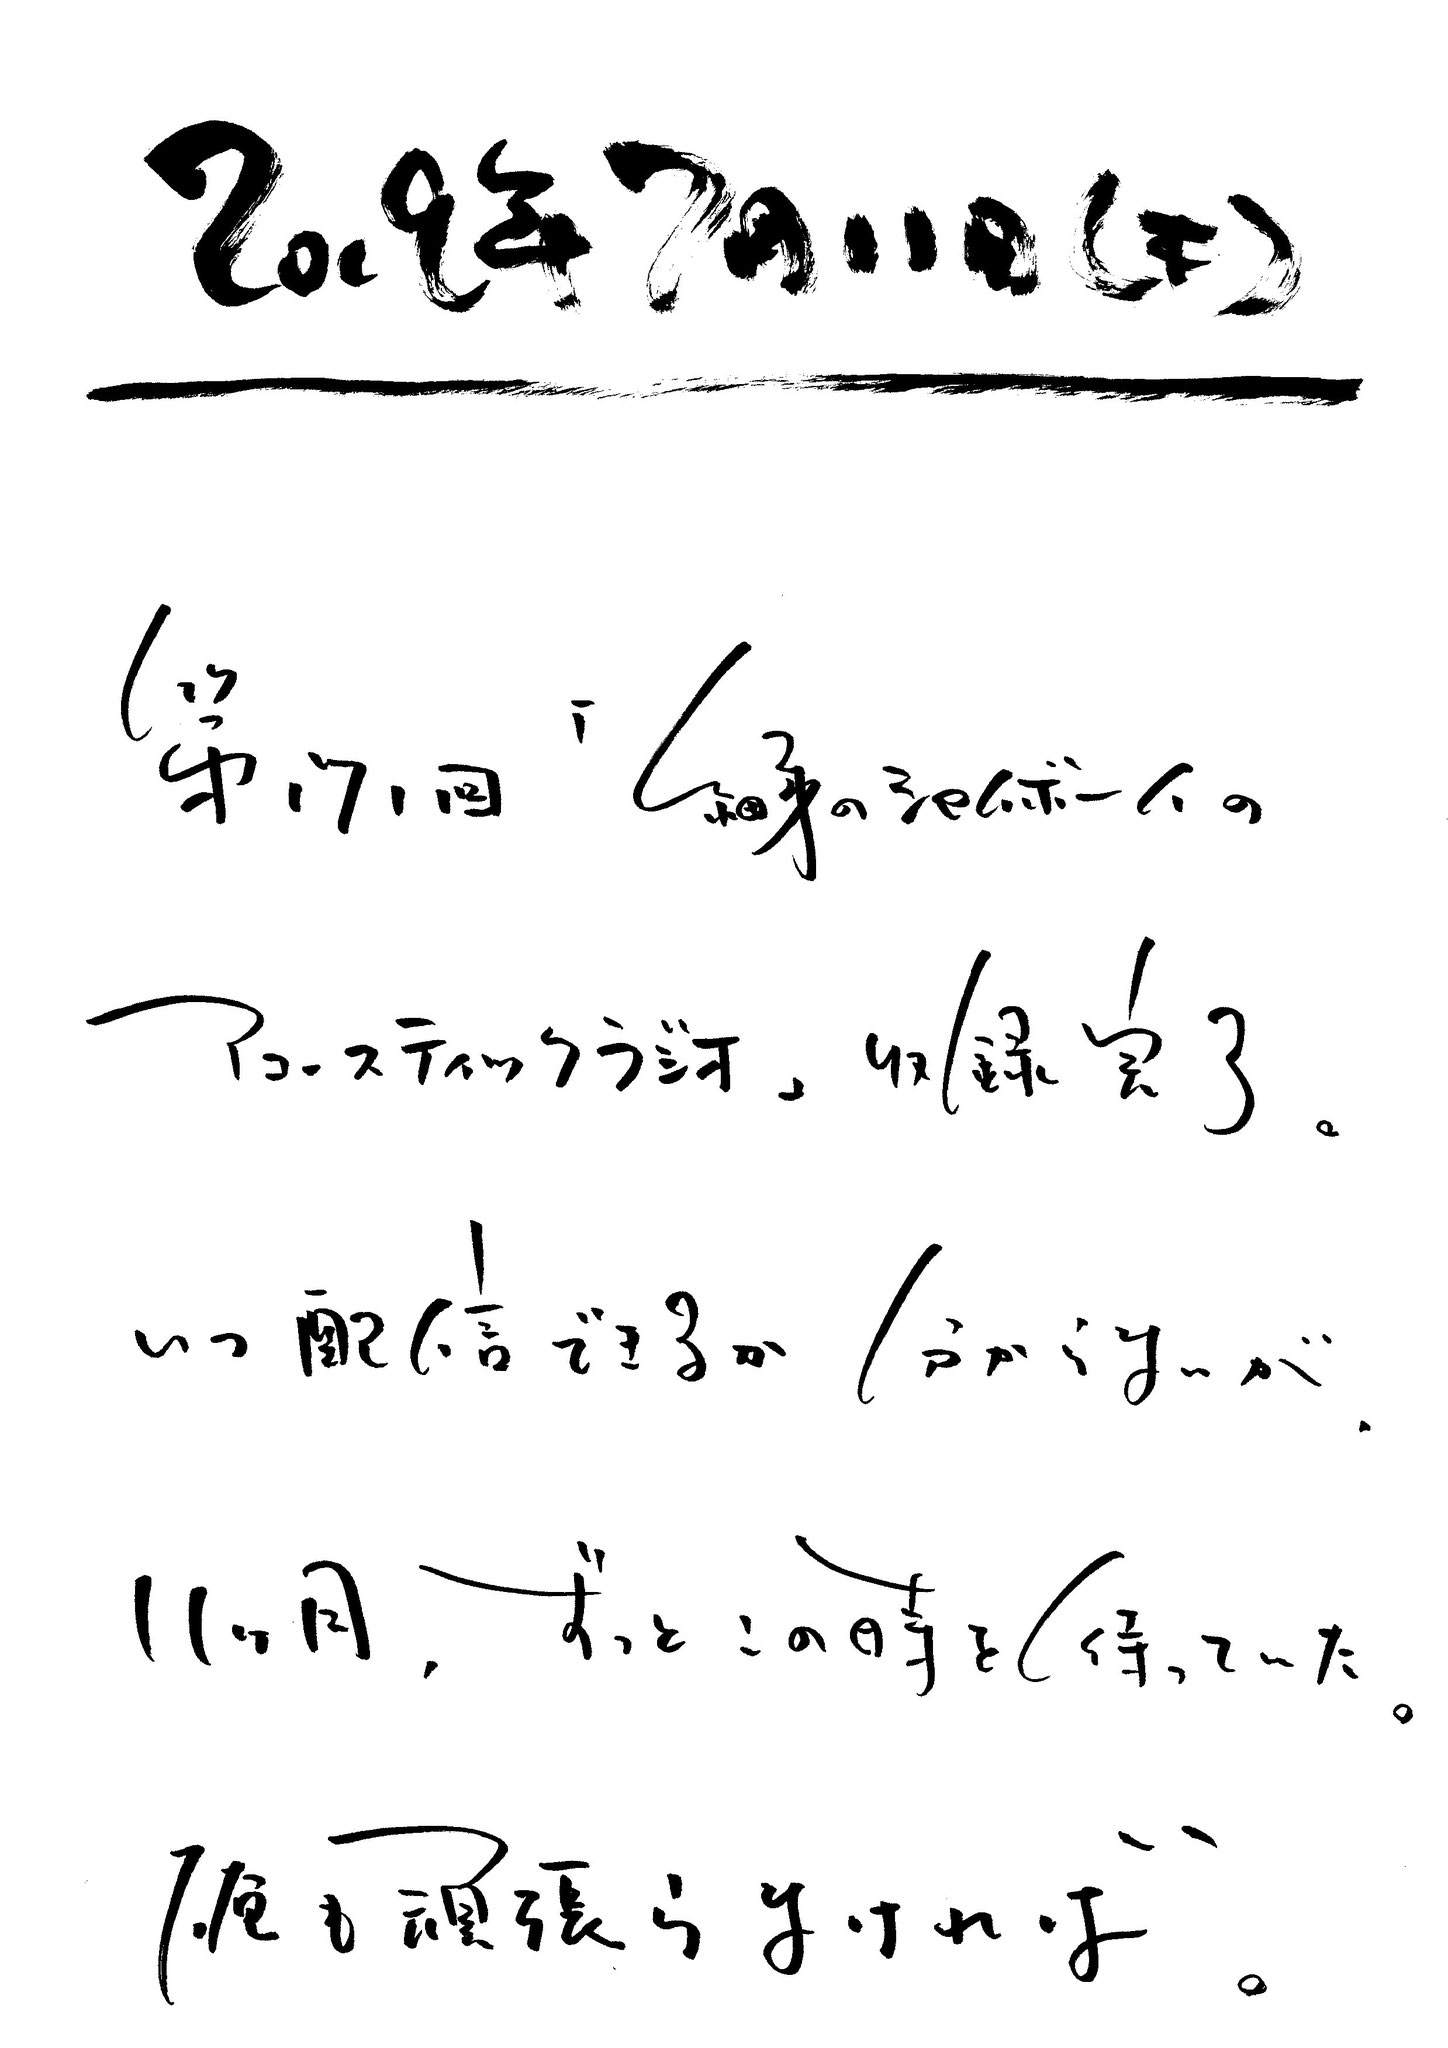 2019年7月11日(木)
第171回「細身のシャイボーイの
アコースティックラジオ」収録完了。
いつ配信できるか分からないが、
11ヶ月、ずっとこの時を待っていた。
俺も頑張らなければ。